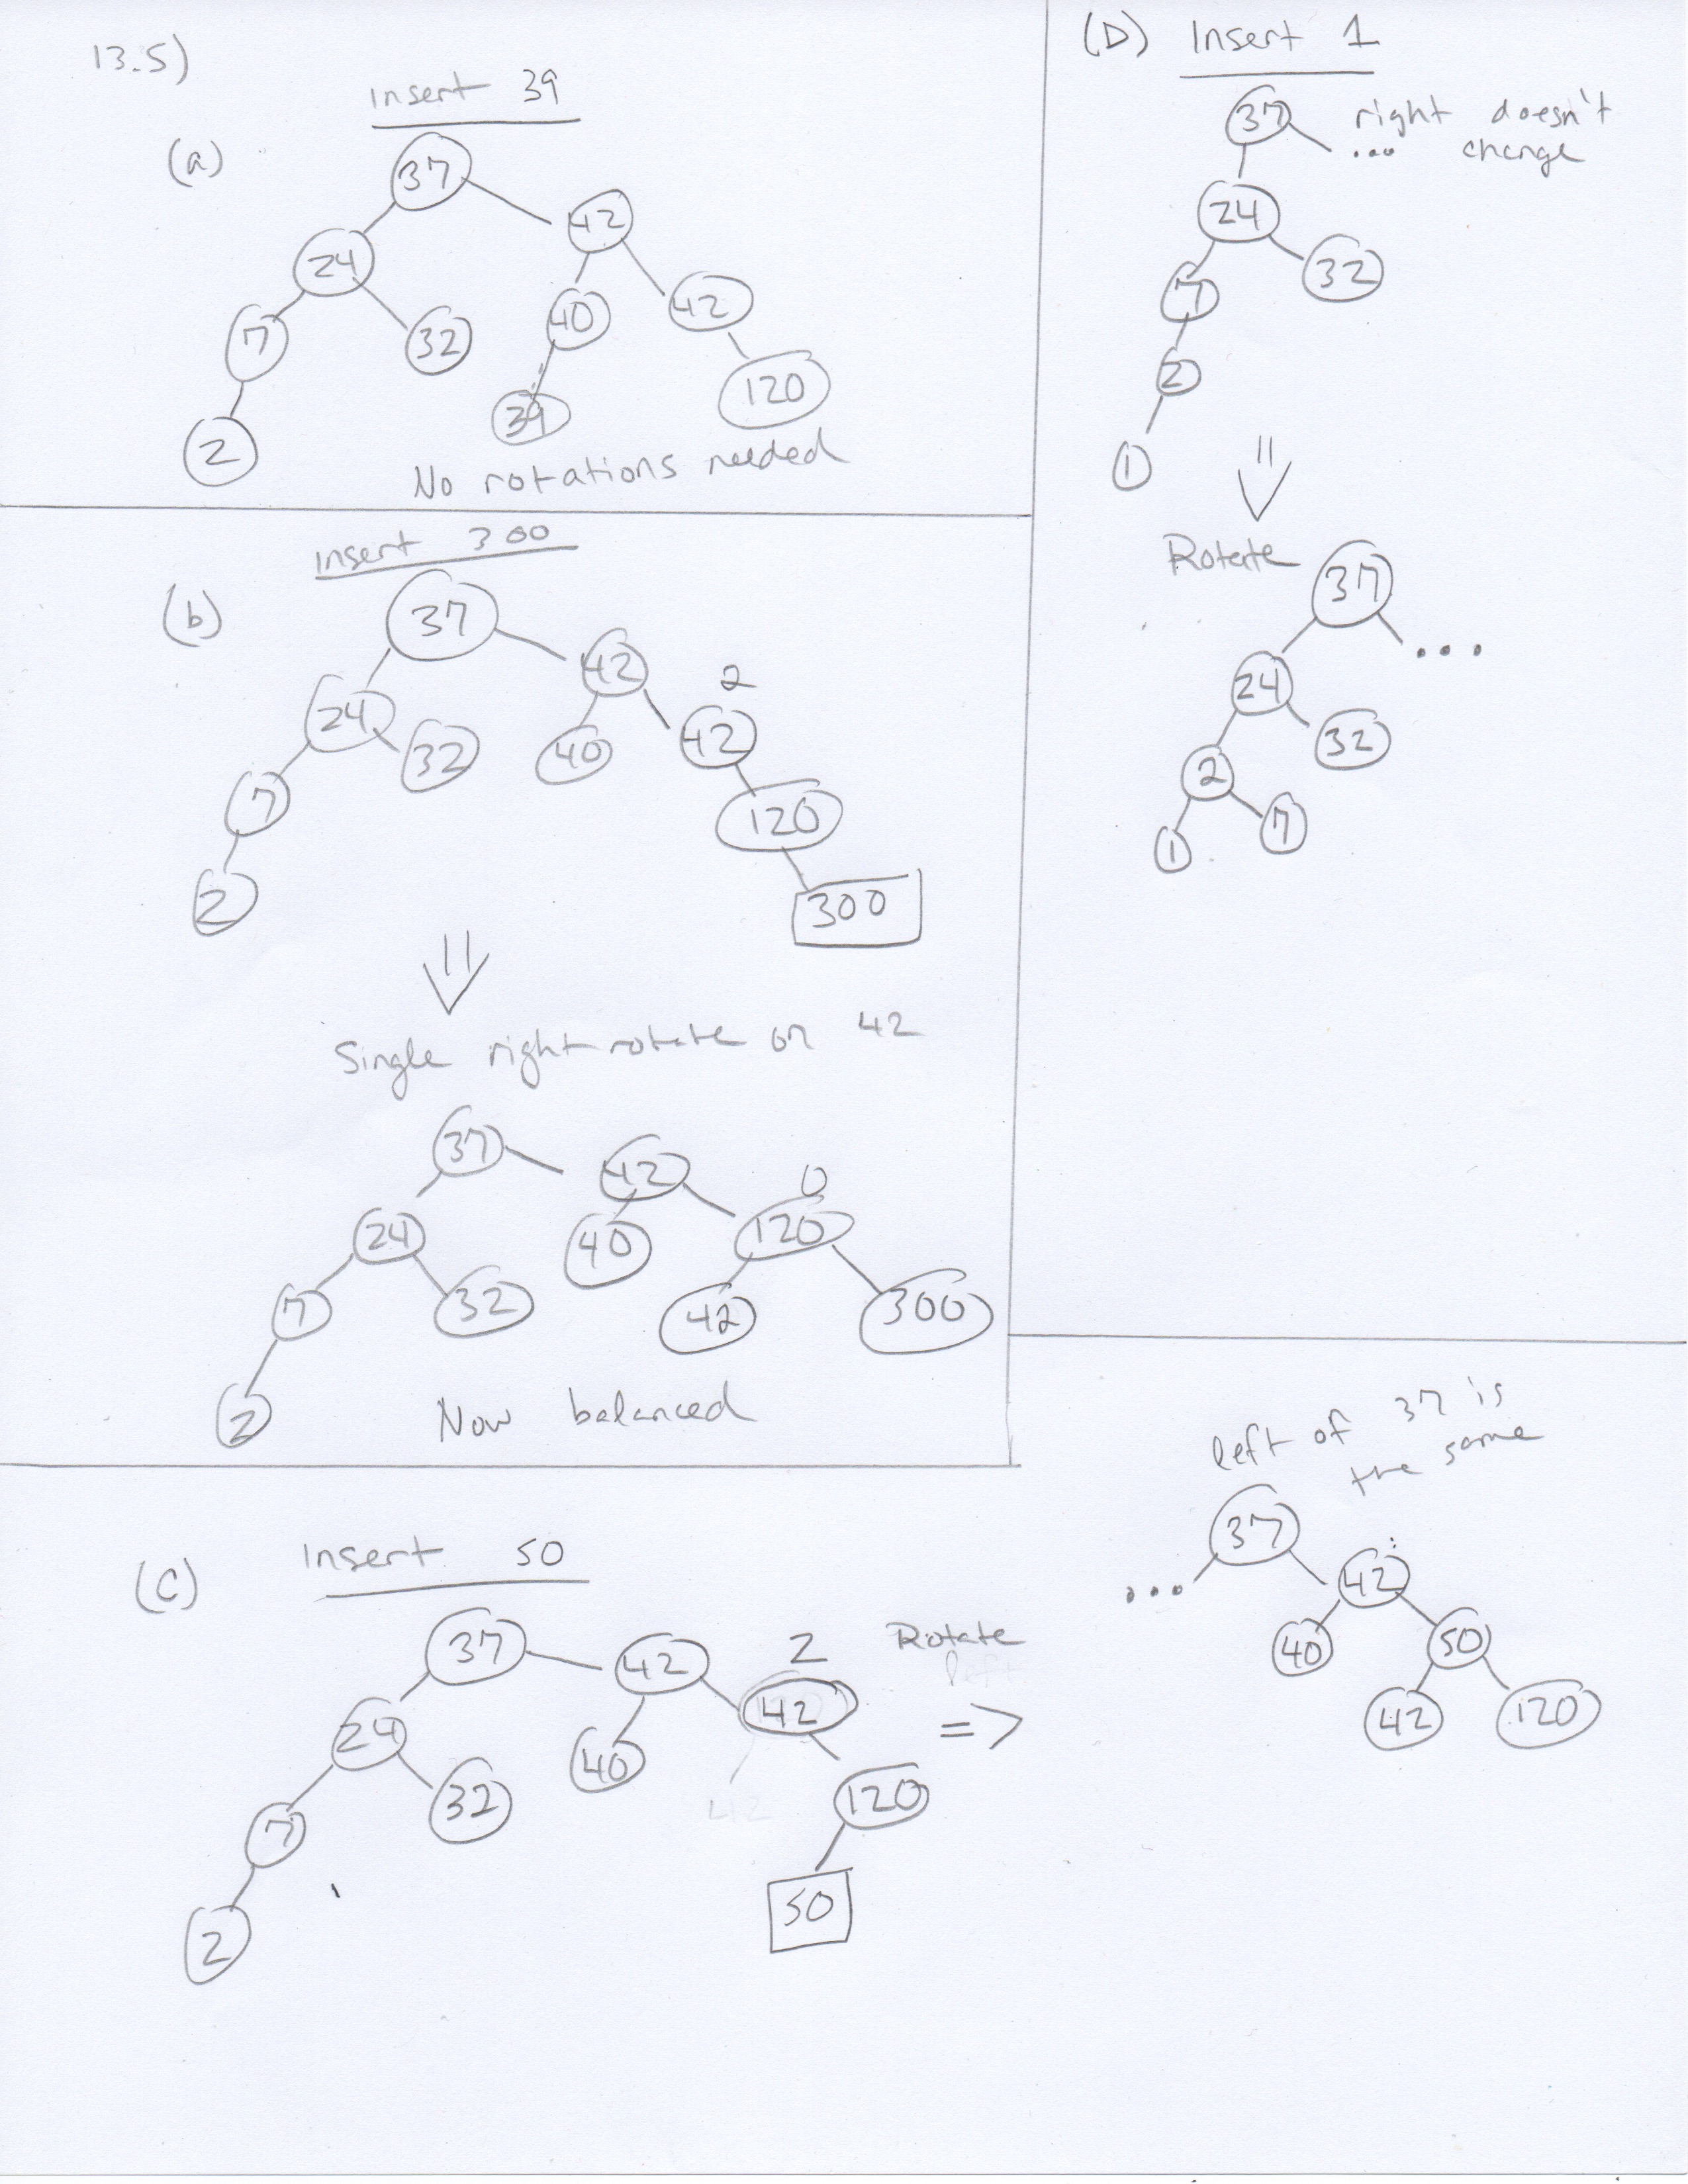 13.5)
Insert 39
(a)
37
42
24
7
32
40
42
2
39
120
No rotations needed
Insert 300
(b)
37
42
2
24
32
40
42
7
120
2
300
Single right rotate on 42
37
42
0
24
40
120
7
32
42
300
2
Now balanced
(c)
Insert 50
37
42
2
42
Rotate
left
=>
24
40
42
7
32
120
2
50
left of 37 is
the same
37
...
42
40
50
42
120
(D) Insert 1
37
... right doesn't
change
24
7
32
2
1
Rotate
37
...
24
2
32
1
7